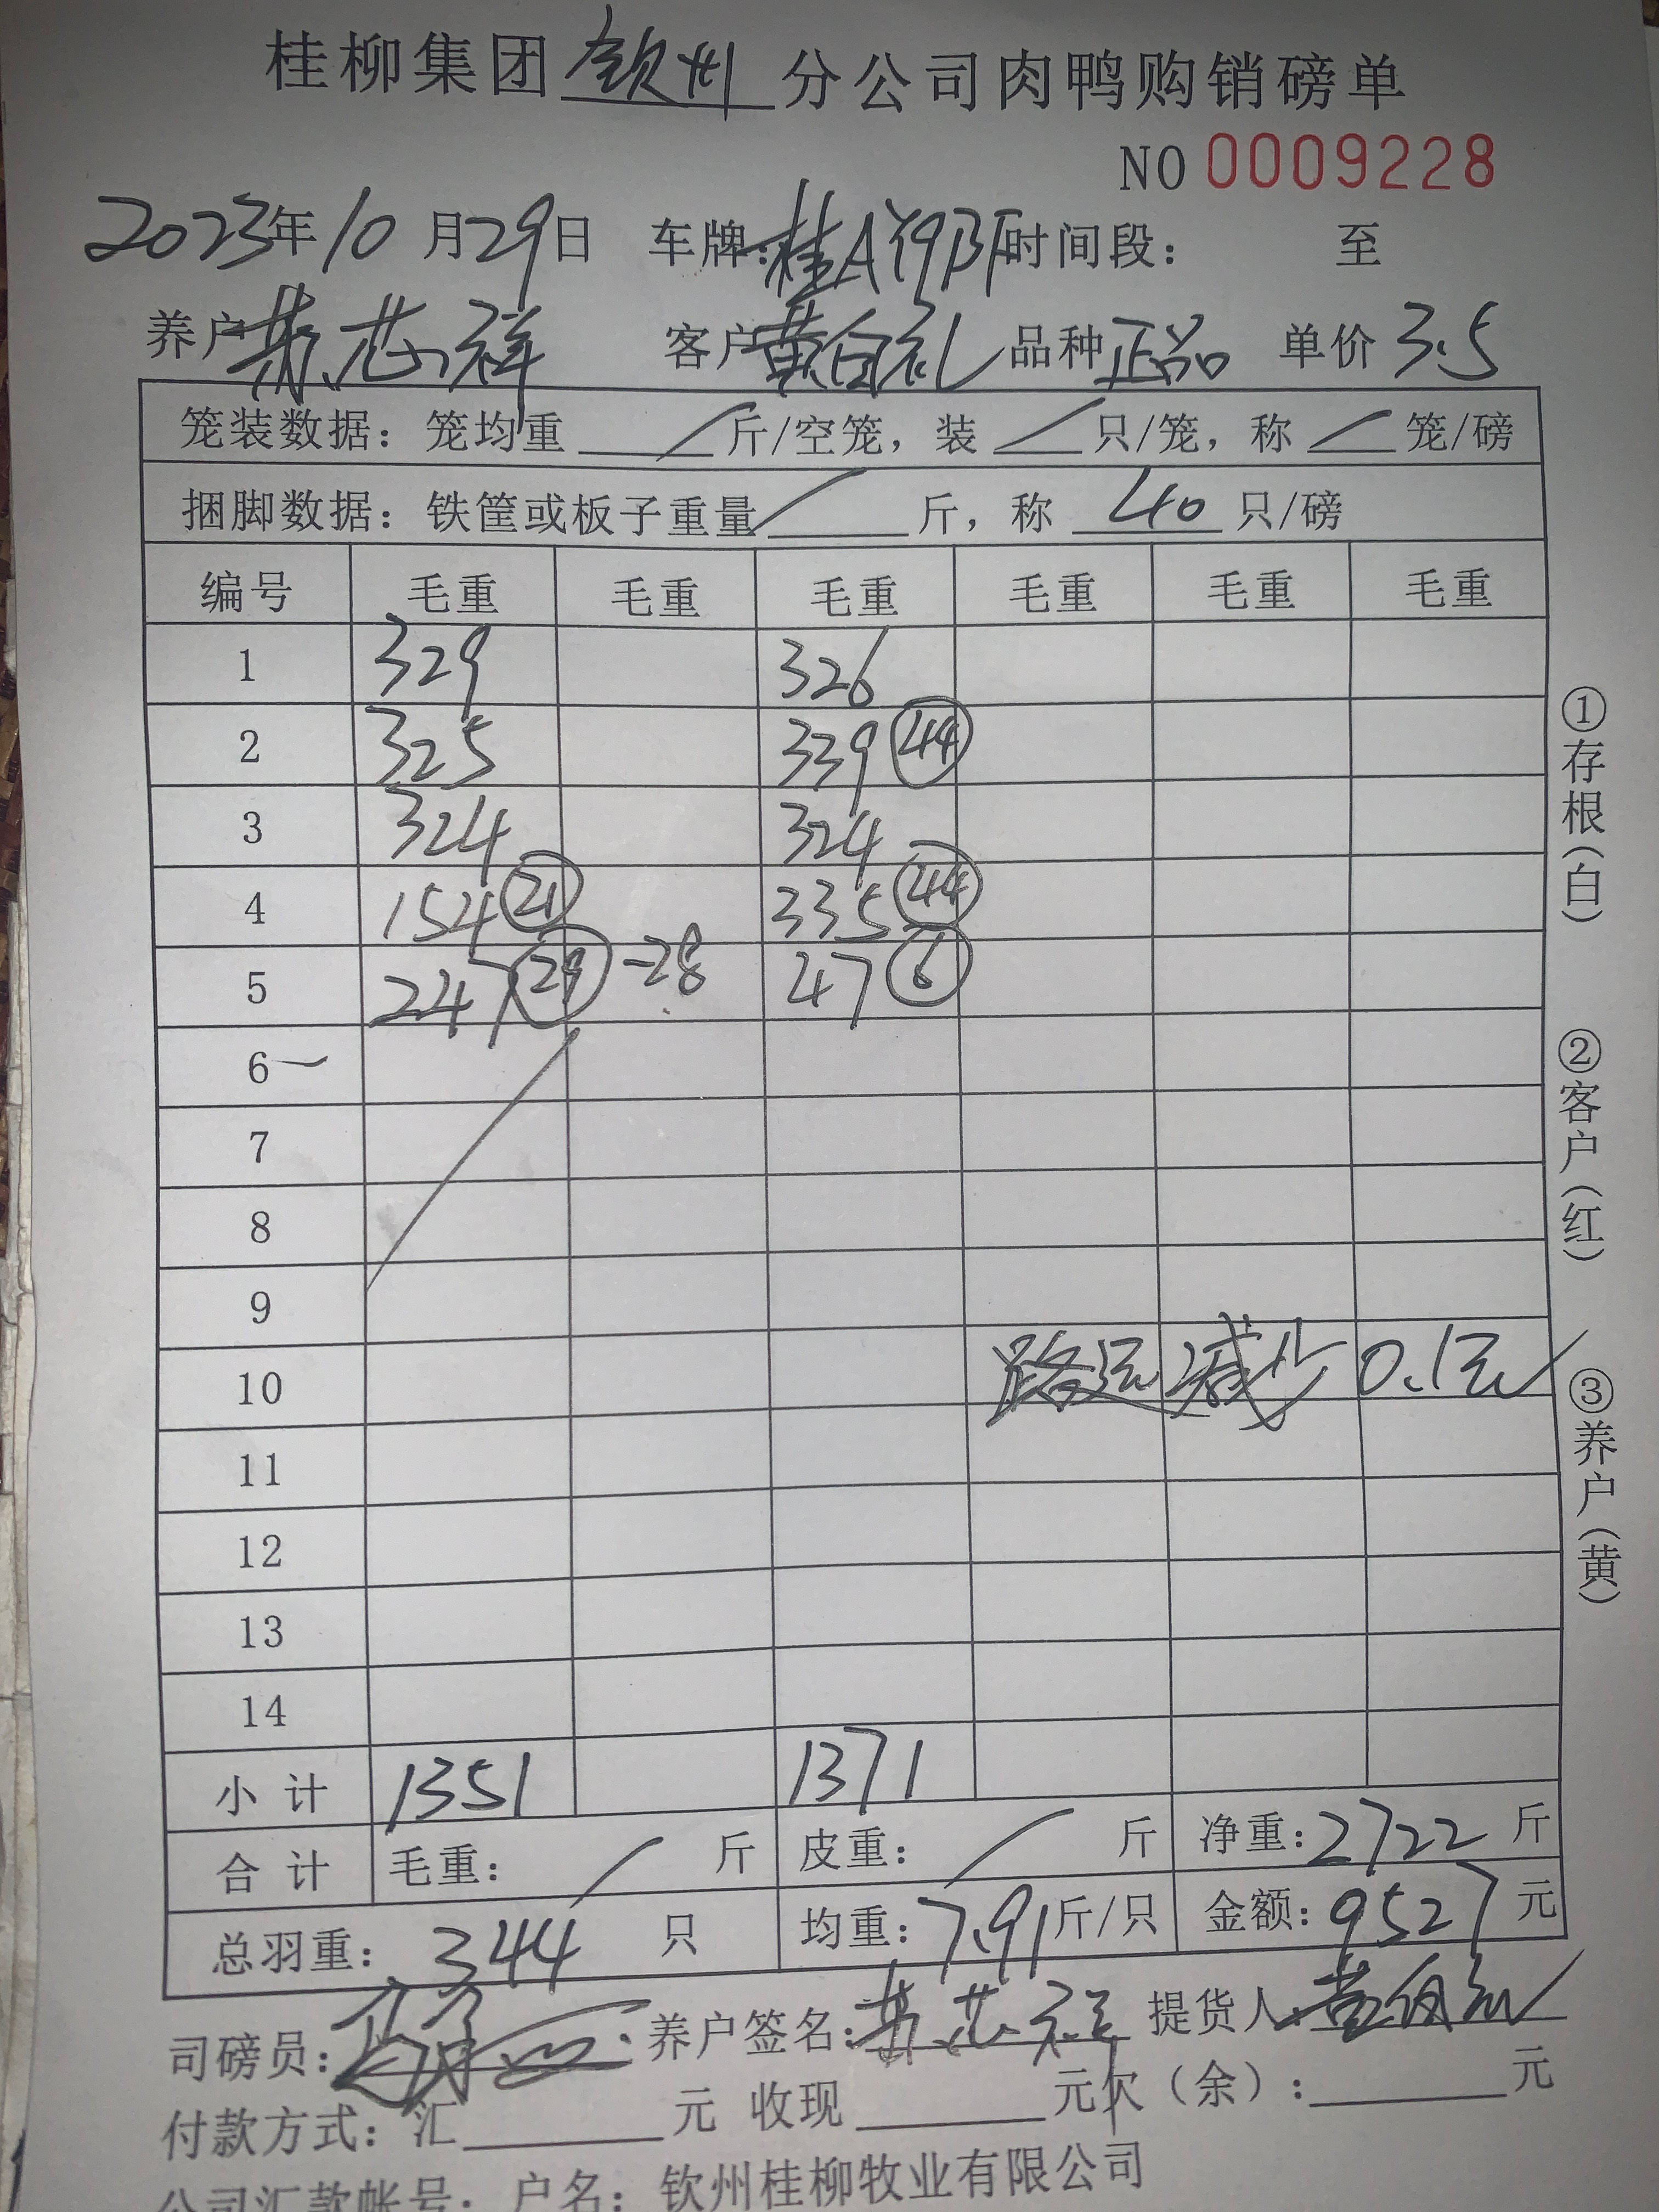 桂柳集团钦州分公司肉鸭购销磅单
NO 0009228
2023年10月29日 车牌:桂A 时间段: 至
养户 苏芯祥 客户 黄自礼 品种 正品 单价 3.5
笼装数据: 笼均重 / 斤/空笼, 装 / 只/笼, 称 / 笼/磅
捆脚数据: 铁筐或板子重量 / 斤, 称 40 只/磅
编号 毛重 毛重 毛重 毛重 毛重 毛重
1 329 326
2 325 339 44
3 324 324
4 154 21 335 44
5 247 29 -28 47 6
6
7
8
9
10 路远减少0.1元
11
12
13
14
小计 1351 1371
合计 毛重: / 斤 皮重: / 斤 净重: 2722 斤
总羽重: 344 只 均重: 7.91 斤/只 金额: 9527 元
司磅员: 养户签名: 苏芯祥 提货人:
付款方式: 汇 元 收现 元 欠(余): 元
公司汇款帐号: 户名: 钦州桂柳牧业有限公司
①存根(白)
②客户(红)
③养户(黄)